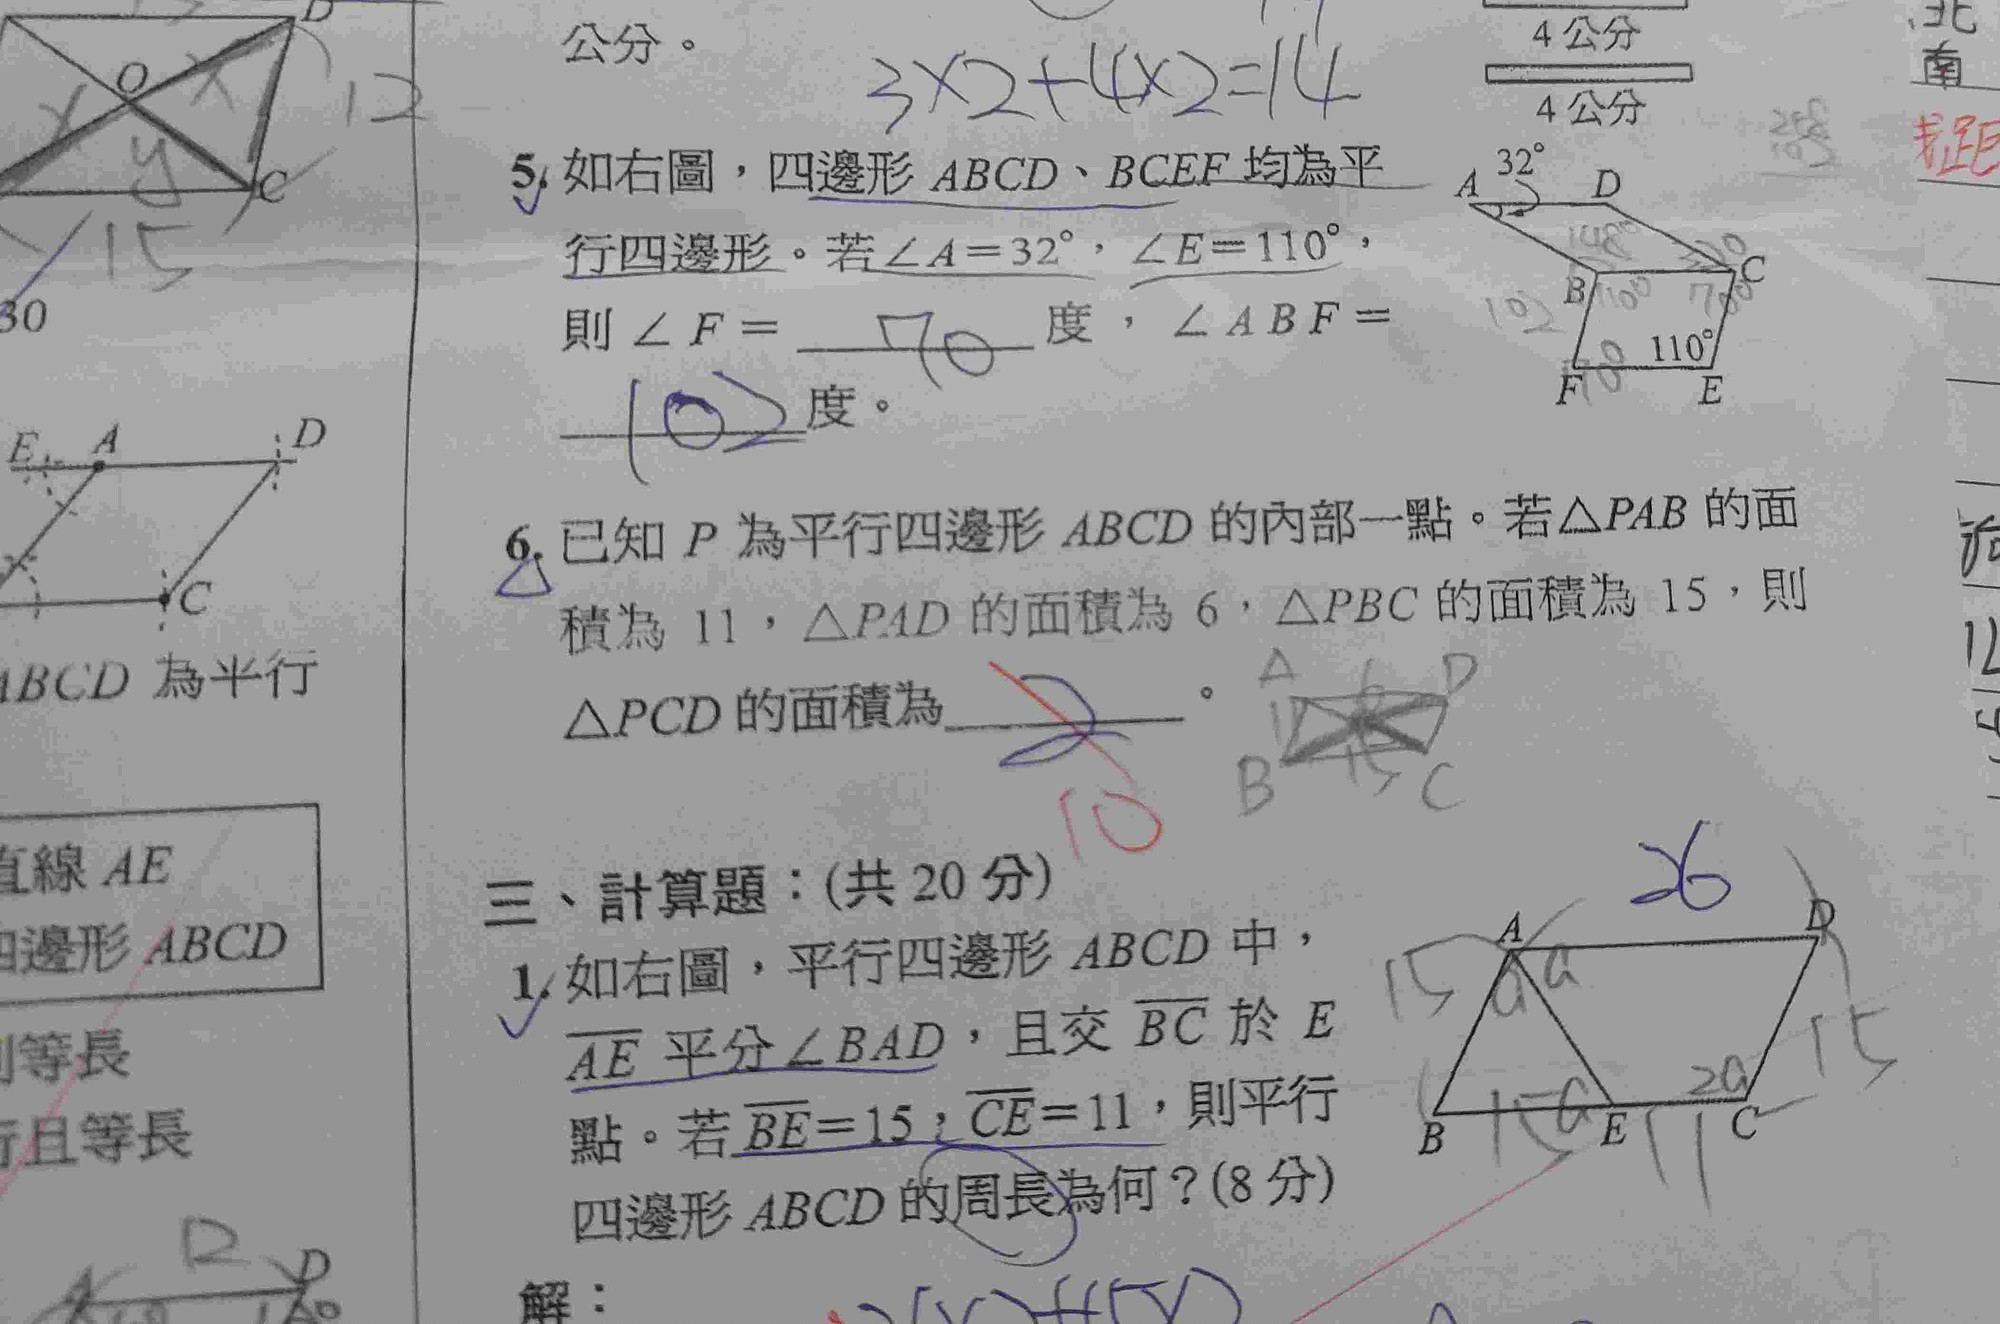 D
O
x
x
y
12
C
15
30
E A D
C
ABCD 為平行
直線 AE
四邊形 ABCD
等長
行且等長
12
D
公分。
3×2+4×2=14
4 公分
4 公分
5. 如右圖,四邊形 ABCD、BCEF 均為平
行四邊形。若∠A=32°,∠E=110°,
則 ∠F= 70 度,∠ABF=
102 度。
A 32° D
148°
B C
110° 70°
102
70 110°
F E
6. 已知 P 為平行四邊形 ABCD 的內部一點。若△PAB 的面
積為 11,△PAD 的面積為 6,△PBC 的面積為 15,則
△PCD 的面積為 2 。
10
A 6 D
11
B 15 C
三、計算題:(共 20 分)
1. 如右圖,平行四邊形 ABCD 中,
AE 平分∠BAD,且交 BC 於 E
點。若 BE=15,CE=11,則平行
四邊形 ABCD 的周長為何?(8 分)
解:
26
A D
15 a a
15
2a
B 15 a E 11 C
北
南
距